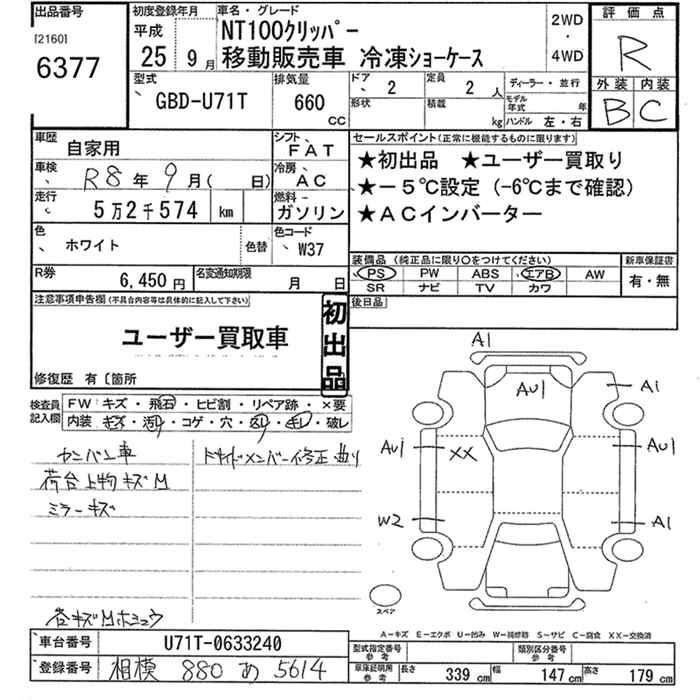 出品番号
[2160]
6377
初度登録年月
平成
25 9月
車名・グレード
NT100クリッパー
移動販売車 冷凍ショーケース
2WD
・
4WD
評価点
R
外装 内装
B C
型式
GBD-U71T
排気量
660
CC
ドア 2
定員 2 人
形状
積載 kg
ディーラー・並行
モデル年式 年
ハンドル 左・右
車歴
自家用
シフト
FAT
セールスポイント(正常に機能するものに限ります)
★初出品 ★ユーザー買取り
★－5℃設定 (-6℃まで確認)
★ACインバーター
車検
R8年 9月( 日)
冷房
AC
走行
5万2千574 km
燃料
ガソリン
色
ホワイト
色替
色コード
W37
装備品 (純正品に限り○をつけてください)
PS PW ABS エアB AW
SR ナビ TV カワ
新車保証書
有・無
R券
6,450円
名変通知期限
月 日
後日品
注意事項申告欄(不具合内容等は具体的に記入して下さい)
ユーザー買取車
初出品
修復歴 有〔箇所
検査員記入欄
FW キズ・飛石・ヒビ割・リペア跡・×要
内装 キズ・汚れ・コゲ・穴・凹り・キレ・破レ
荷台上物キズM
ミラーキズ
メンバー修正 曲り
A1
AU1
A1
AU1
XX
AU1
W2
A1
スペア
A-キズ E-エクボ U-凹み W-補修跡 S-サビ C-腐食 XX-交換済
車台番号
U71T-0633240
登録番号
相模 880 あ 5614
型式指定番号
参考
類別区分番号
参考
車庫証明用
参考
長さ 339 cm 幅 147 cm 高さ 179 cm